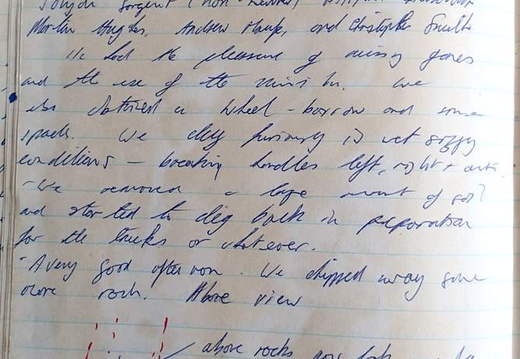 Martin Hughes, Andrew and Christopher Smith
We had the pleasure of missing games
and the use of the mini bus. We
also obtained a wheel-barrow and some
spades. We dug furiously in wet soggy
conditions - breaking handles left, right +
- We removed a large amount of soil
and started to dig back in preparation
for the trucks or whatever.
- A very good afternoon. We chipped away some
more rock. Above view
above rocks now